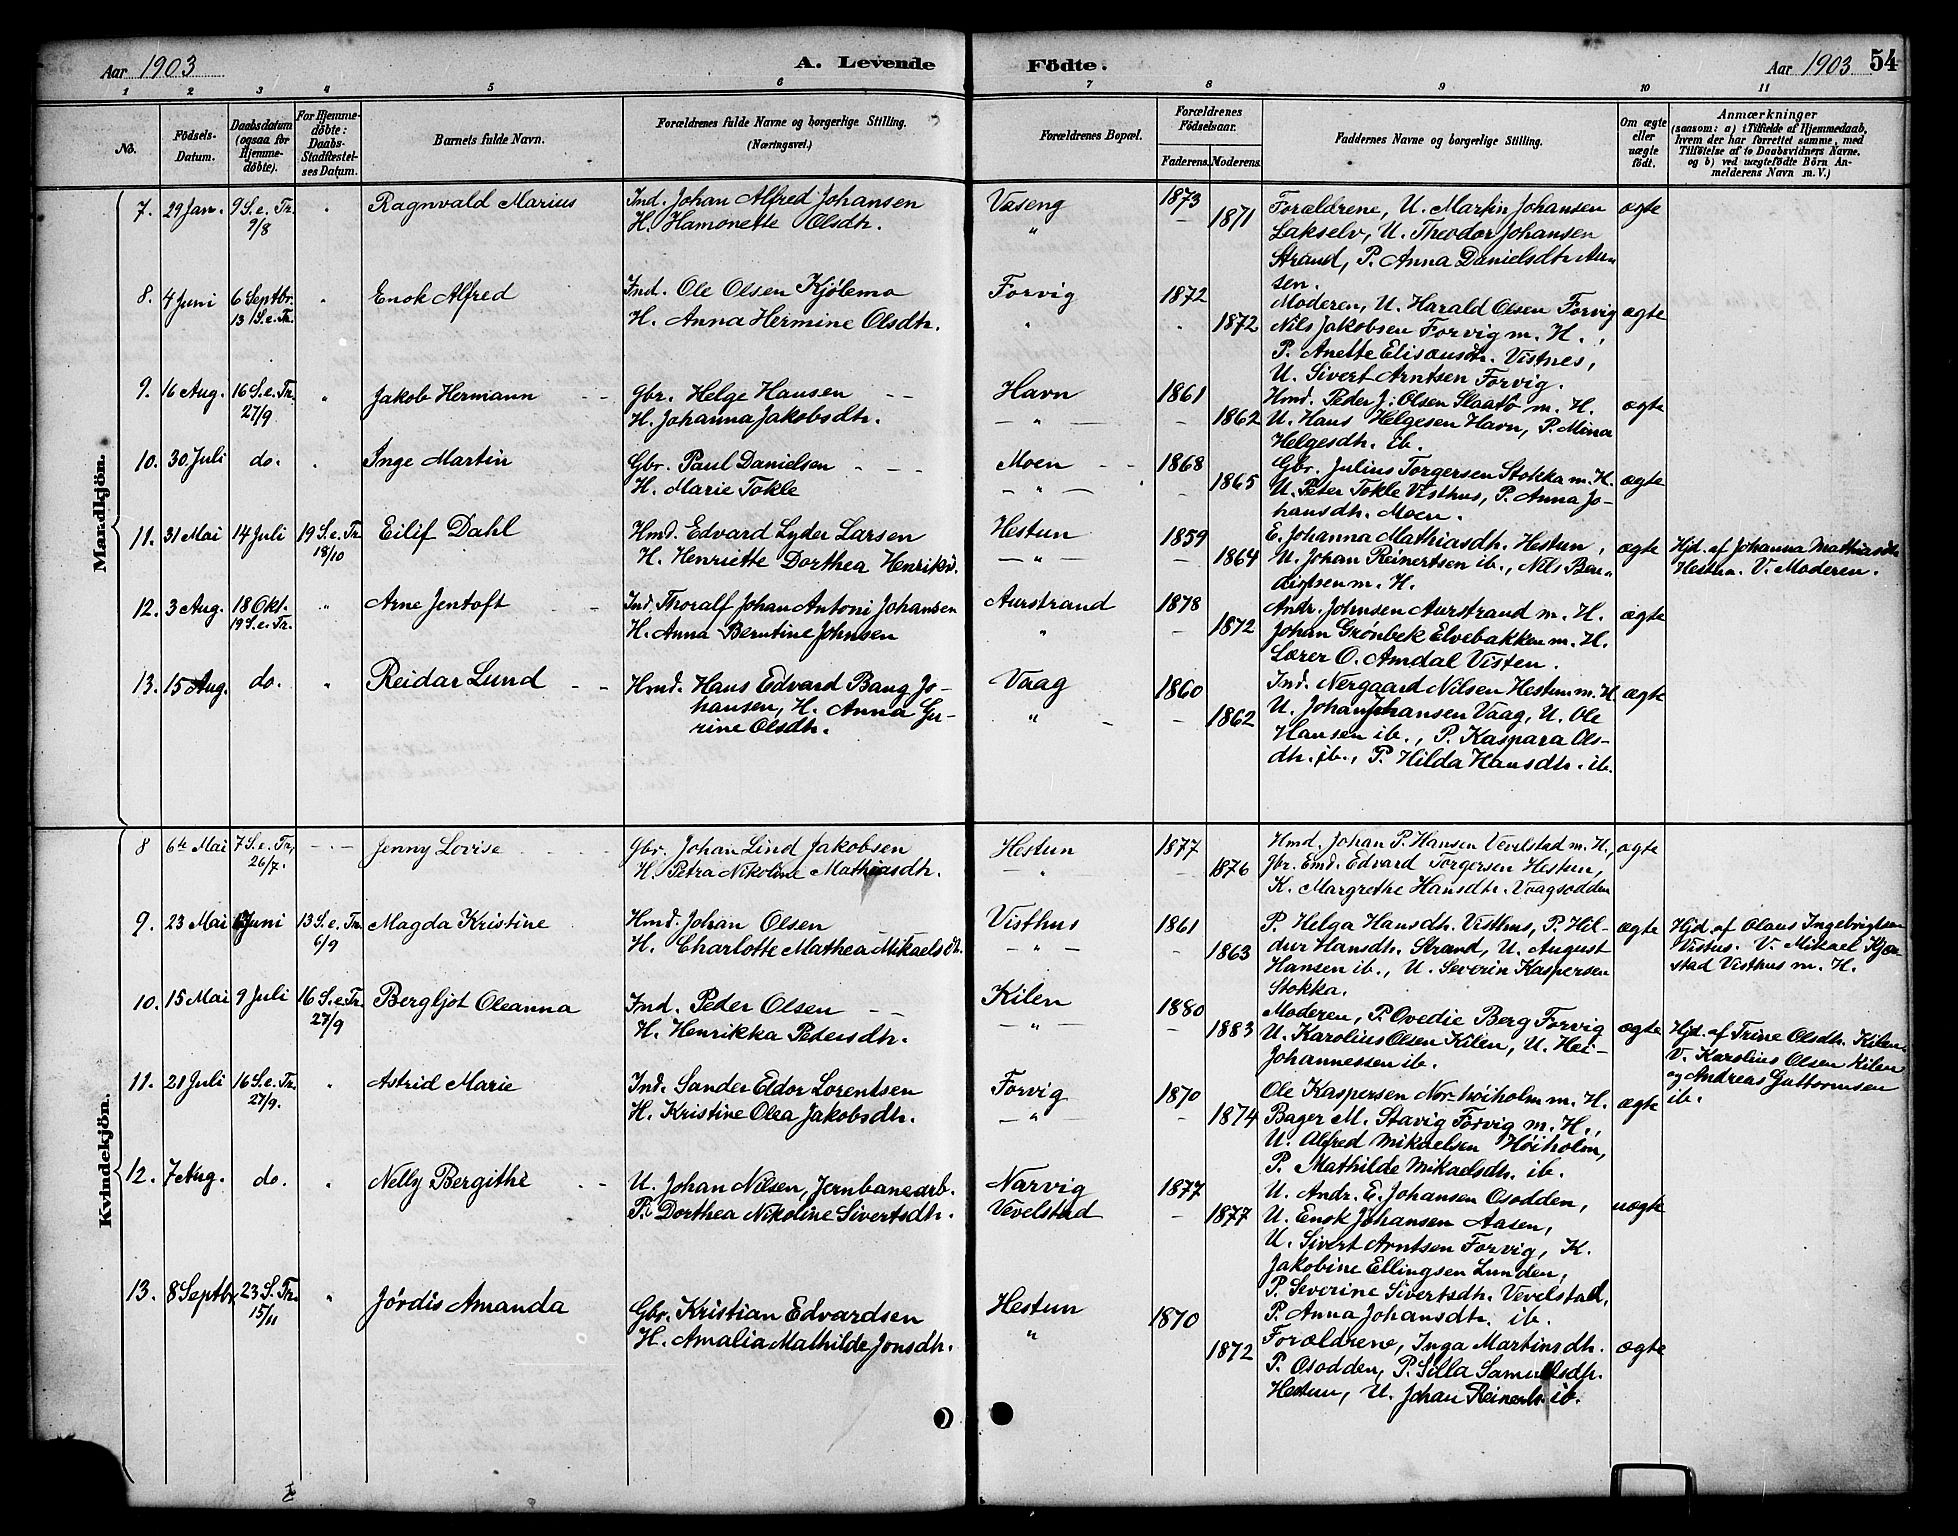 Aar 1903 A. Levende Födte. Aar 1903 54
1 2 3 4 5 6 7 8 9 10 11
No.
Födsels-Datum.
Daabsdatum (ogsaa for Hjemmedöbte).
For Hjemmedöbte: Daabs-Stadfæstelses Datum.
Barnets fulde Navn.
Forældrenes fulde Navne og borgerlige Stilling. (Næringsvei.)
Forældrenes Bopæl.
Forældrenes Födselsaar.
Faderens. Moderens.
Faddernes Navne og borgerlige Stilling.
Om ægte eller uægte födt.
Anmærkninger
(saasom: a) i Tilfælde af Hjemmedaab,
hvem der har forrettet samme, med
Tilföielse af to Daabsvidners Navne,
og b) ved uægtefödte Börn Anmelderens Navn m. V.)
Mandkjön.
7. 29 Jan. 9 S. e. Tr. 9/8 " Ragnvald Marius
Ind. Johan Alfred Johansen
H. Hamonette Olsdtr.
Vaseng
"
1873
1871
Forældrene, U. Martin Johansen
Lakselv, U. Theodor Johansen
Strand, P. Anna Danielsdtr Aun
sen.
ægte
8. 4 Juni 6 Septbr. 13 S. e. Tr. " Enok Alfred
Ind. Ole Olsen Kjölemo
H. Anna Hermine Olsdtr.
Forvig
"
1872
1872
Moderen, U. Harald Olsen Forvig
Nils Jakobsen Forvig m. H.,
P. Anette Elisæusdtr. Vistnes,
U. Sivert Arntsen Forvig.
ægte
9. 16 Aug. 16 S. e. Tr. 27/9 " Jakob Hermann
Gbr. Helge Hansen
H. Johanna Jakobsdtr.
Havn
"
1861
1862
Hmd. Peder J. Olsen Slaatö m. H.
U. Hans Helgesen Havn, P. Mina
Helgesdtr. ib.
ægte
10. 30 Juli do. " Inge Martin
Gbr. Paul Danielsen
H. Marie Tokle
Moen
"
1868
1865
Gbr. Julius Torgersen Stokka m. H.
U. Peter Tokle Visthus, P. Anna Jo-
hansdtr. Moen.
ægte
11. 31 Mai 14 Juli 19 S. e. Tr 18/10 Eilif Dahl
Hmd. Edvard Lyder Larsen
H. Henriette Dorthea Henriksd.
Hestun
"
1859
1864
E. Johanna Mathiasdtr. Hestun,
U. Johan Reinertsen ib., Nils Ben-
digtsen m. H.
ægte
Hjd. af Johanna Mathiasdtr
Hestun. V. Moderen.
12. 3 Aug. 18 Okt. 19 S. e. Tr. " Arne Jentoft
Ind. Thoralf Johan Antoni Johansen
H. Anna Berntine Johnsen
Aurstrand
"
1878
1872
Andr. Johnsen Aurstrand m. H.
Johan Grønbek Elvebakken m. H.
Lærer O. Amdal Visten.
ægte
13. 15 Aug. do. " Reidar Lund
Hmd. Hans Edvard Bang Jo-
hansen, H. Anna Gu-
rine Olsdtr.
Vaag
"
1860
1862
Ind. Nergaard Nilsen Hestun m. H
U. Johan Johansen Vaag, U. Ole
Hansen ib., P. Kaspara Ols-
dtr. ib., P. Hilda Hansdtr. ib.
ægte
Kvindekjön.
8 6te Mai 7 S. e. Tr, 26/7. Jenny Lovise
Gbr. Johan Lind Jakobsen
H. Petra Nikoline Mathiasdtr.
Hestun
"
1877
1876
Hmd. Johan P. Hansen Vevelstad m. H.,
Gbr. Emd. Edvard Torgersen Hestun,
K. Margrethe Hansdtr. Vaagsodden
ægte
9. 23 Mai Juni 13 S. e. Tr. 6/9 Magda Kristine
Hmd. Johan Olsen
H. Charlotte Mathea Mikaelsdtr.
Visthus
"
1861
1863
P. Helga Hansdtr. Visthus, P. Hil-
dur Hansdtr. Strand, U. August
Hansen ib., U. Severin Kaspersen
Stokka.
ægte
Hjd. af Olaus Ingebrigtsen
Vistus. V. Mikael Kjæn
stad Visthus m. H.
10. 15 Mai 9 Juli 16 S. e. Tr 27/9 Bergljot Oleanna
Ind. Peder Olsen
H. Henrikka Petersdtr.
Kilen
"
1880
1883
Moderen, P. Ovedie Berg Forvig
U. Karolius Olsen Kilen, U. Hei-
Johannessen ib.
ægte
Hjd. af Trine Olsdtr. Kilen.
V. Karolius Olsen Kilen
og Andreas Guttormsen
ib.
11. 21 Juli 16 S. e. Tr. 27/9. " Astrid Marie
Ind. Sander Eldor Lorentsen
H. Kristine Olea Jakobsdtr.
Forvig
"
1870
1874
Ole Kaspersen Nor-höiholm m. H.
Bager M. Stavig Forvig m. H.,
U. Alfred Mikaelsen Höiholm,
P. Mathilde Mikaelsdtr. ib.
ægte
12. 7 Aug. do. " Nelly Bergithe
U. Johan Nilsen, Jernbanearb.
P. Dorthea Nikoline Sivertsdtr.
Narvig
Vevelstad
1877
1877
U. Andr. E. Johansen Osodden,
U. Enok Johansen Aasen,
U. Sivert Arntsen Forvig, K.
Jakobine Ellingsen Lunden,
P. Severine Sivertsdtr. Vevelstad,
P. Anna Johansdtr. ib.
uægte
13. 8 Septbr. 23 S. Tr. 15/11 " Jördis Amanda
Gbr. Kristian Edvardsen
H. Amalia Mathilde Jonsdtr.
Hestun
"
1870
1872
Forældrene, Inga Martinsdtr.
P. Osodden, P. Silla Samuelsdtr.
Hestun, U. Johan Reinerts. ib.
ægte